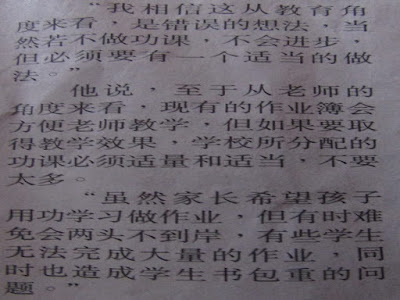 “我相信这从教育角
度来看，是错误的想法，当
然若不做功课，不会进步，
但必须要有一个适当的做
法。”
他说，至于从老师的
角度来看，现有的作业簿会
方便老师教学，但如果要取
得教学效果，学校所分配的
功课必须适量和适当，不要
太多。
“虽然家长希望孩子
用功学习做作业，但有时难
免会两头不到岸，有些学生
无法完成大量的作业，同
时也造成学生书包重的问
题。”